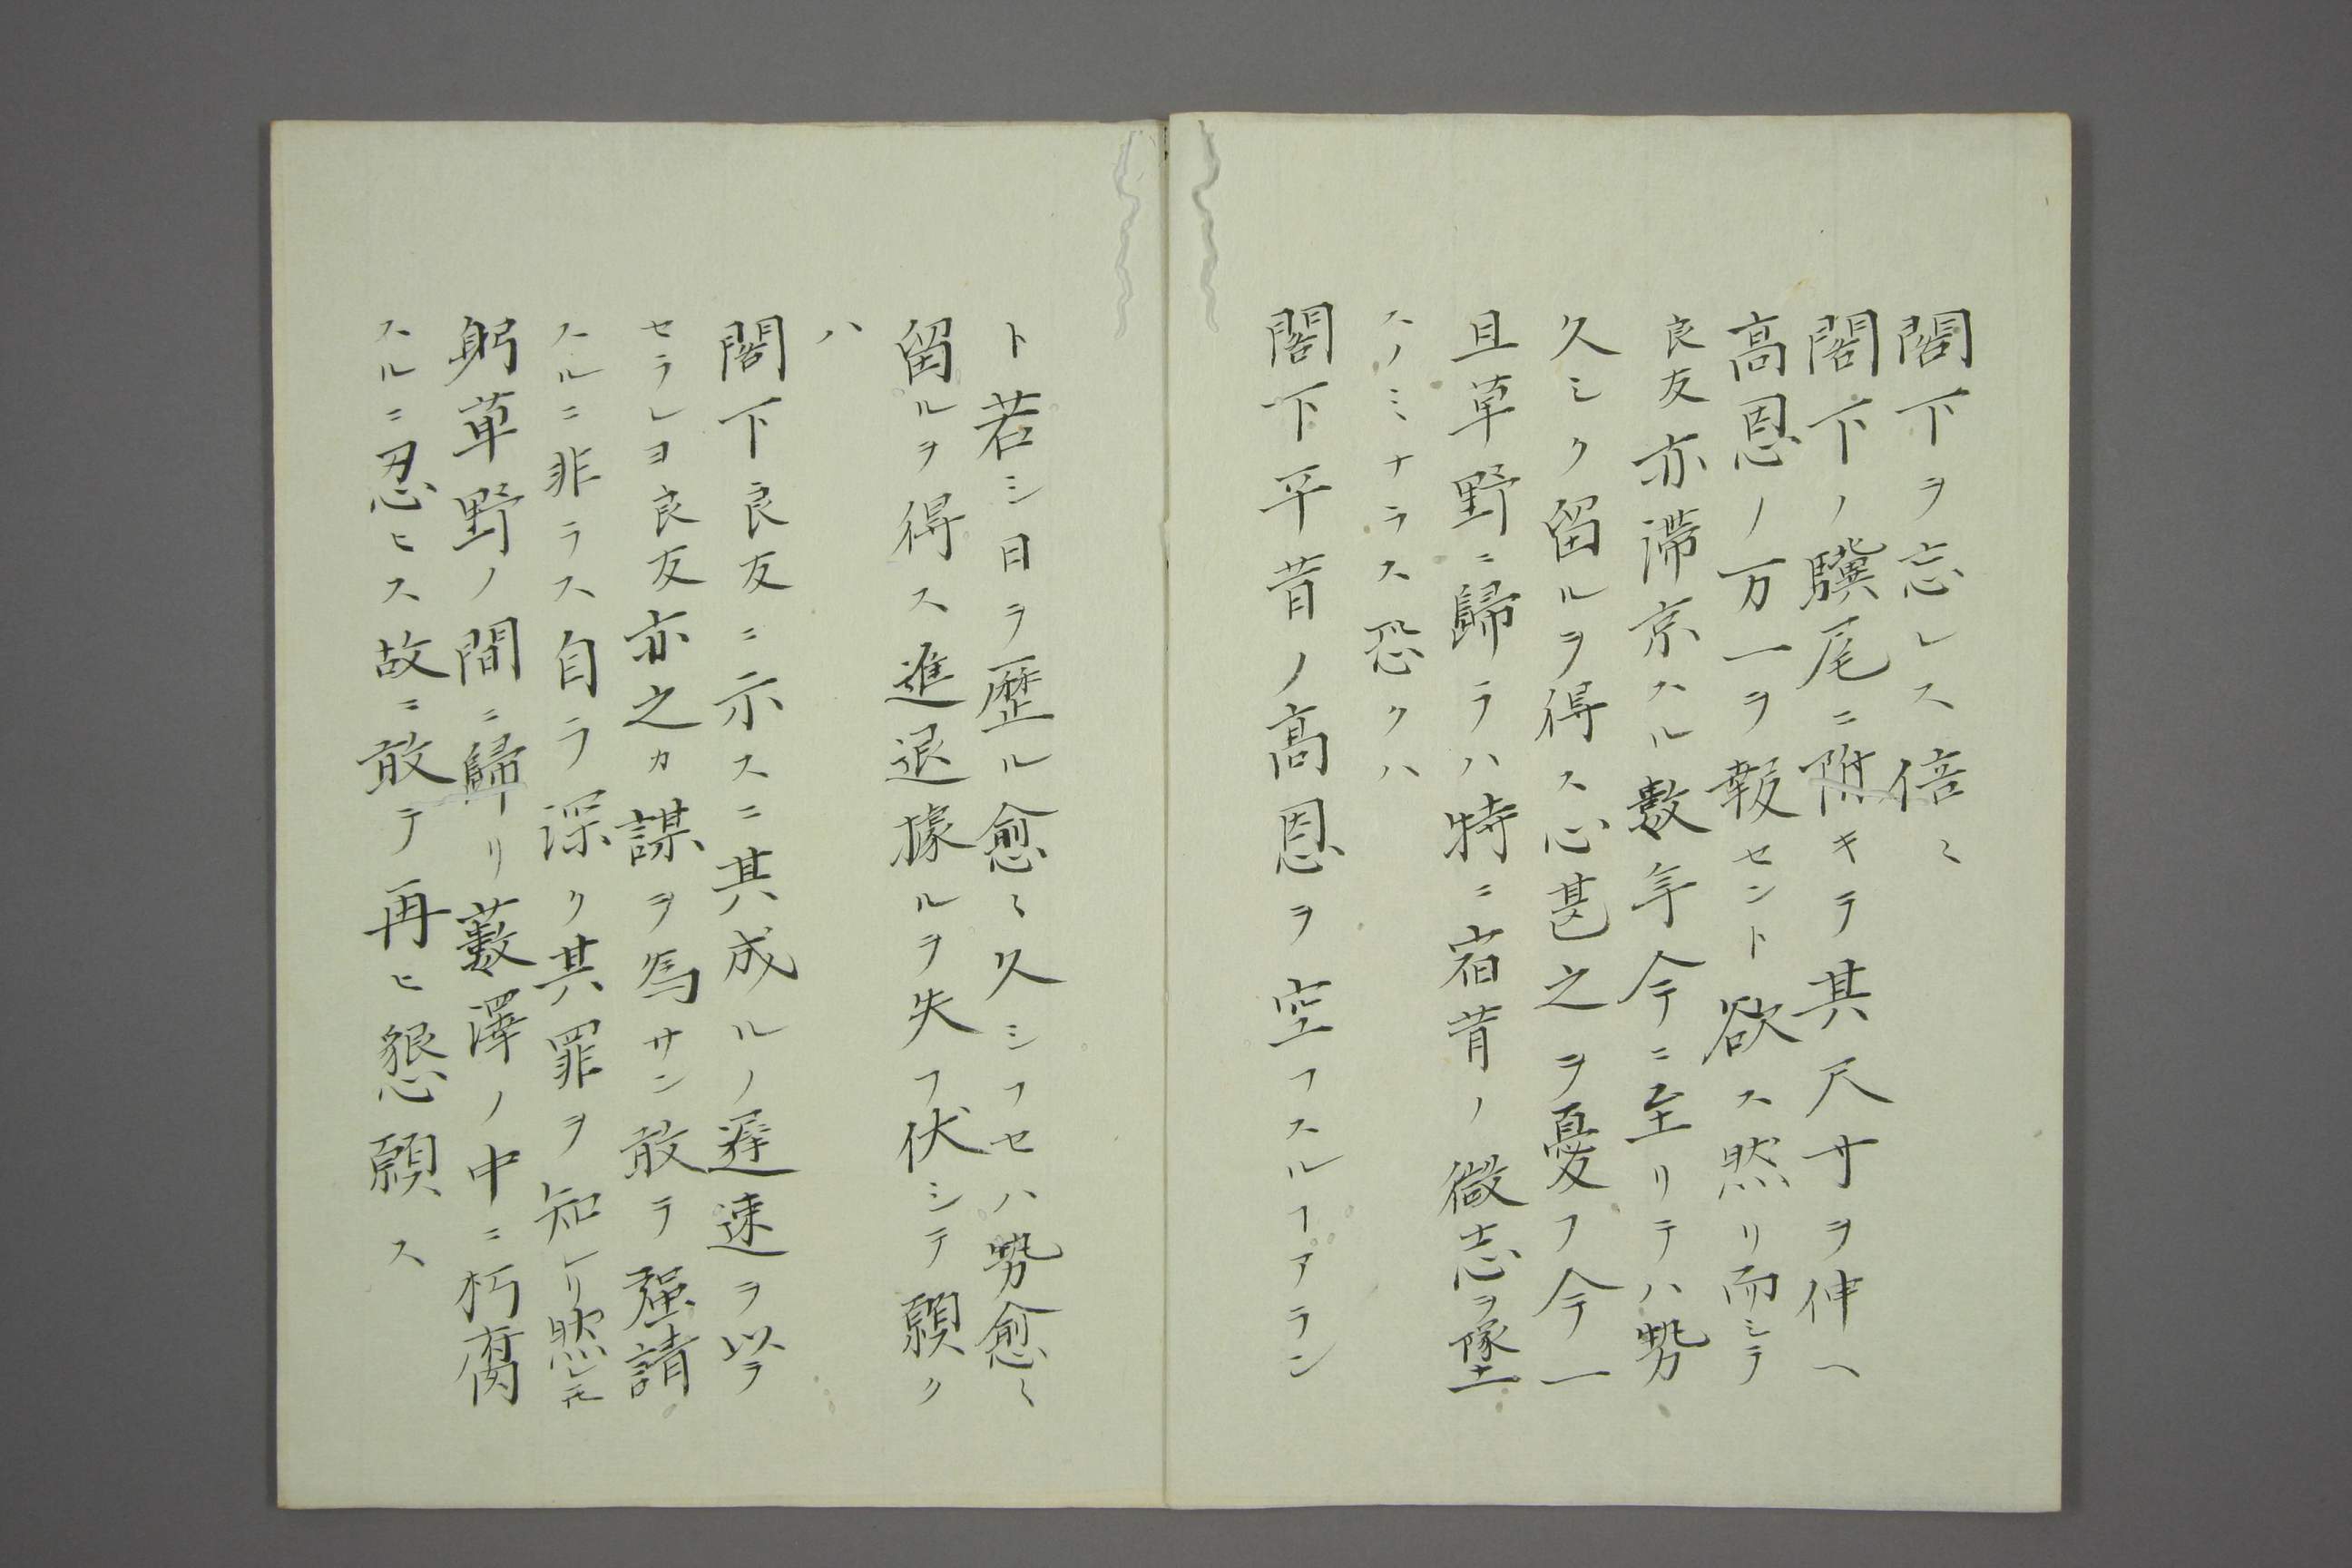 閣下ヲ忘レス倍〻
閣下ノ驥尾ニ附キテ其尺寸ヲ伸ヘ
高恩ノ万一ヲ報セント欲ス然リ而シテ
良友亦滞京スル數年今ニ至リテハ勢
久シク留ルヲ得ス心甚之ヲ憂フ今一
且草野ニ歸ラハ特ニ宿昔ノ微志ヲ墜
スノミナラス恐クハ
閣下平昔ノ高恩ヲ空フスルヿアラン
ト若シ日ヲ歴ル愈〻久シフセハ勢愈〻
留ルヲ得ス進退據ルヲ失フ伏シテ願ク
ハ
閣下良友ニ示スニ其成ルノ遲速ヲ以テ
セラレヨ良友亦之カ謀ヲ為サン敢テ强請
スルニ非ラス自ラ深ク其罪ヲ知レリ然レ𪜈
躬草野ノ間ニ歸リ藪澤ノ中ニ朽腐
スルニ忍ヒス故ニ敢テ再ヒ懇願ス